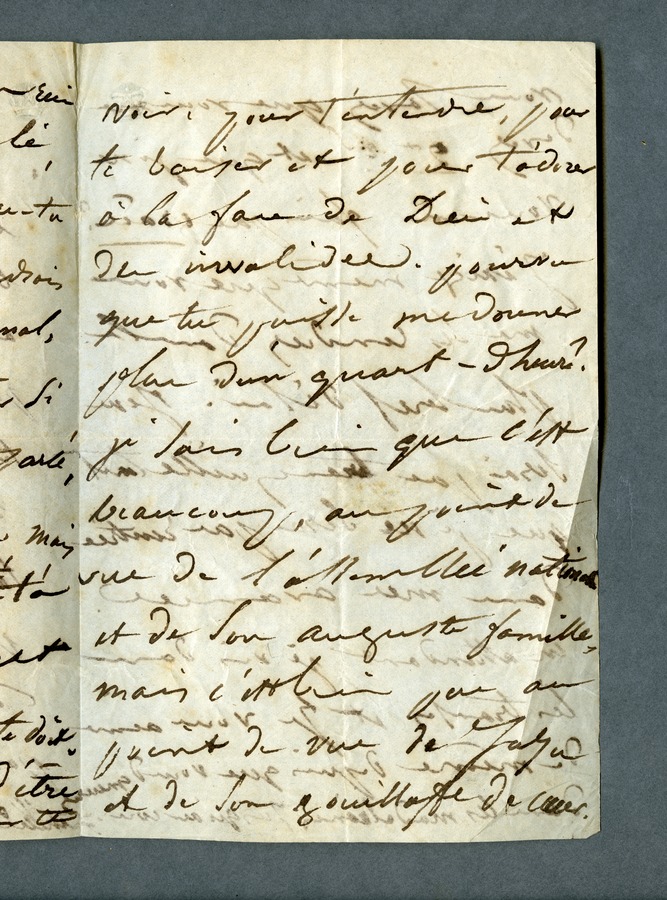 eui
lé,
-tu
drois
mal,
si
parté,
mais
ta
et
te doit
d'être
voir, pour t'entendre, pour
te baiser et pour t'adorer
à la face de Dieu et
des invalides. pourvu
que tu puisse me donner
plus d'un quart-d'heure.
je sais bien que c'est
beaucoup, au point de
vue de l'assemblée nationale
et de son auguste famille,
mais c'est bien peu au
point de vue de Juju
et de son gouillaffe de cœur.